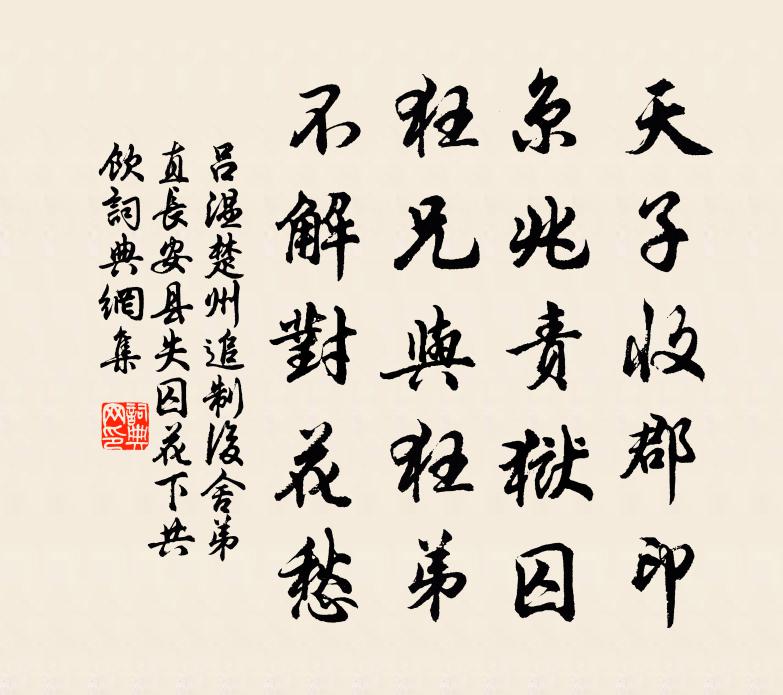 天子收郡印
京兆責獄囚
狂兄與狂弟
不解對花愁
吕溫楚州追制後舍弟
直長安县失囚花下共
飲詞典網集
詞典网印